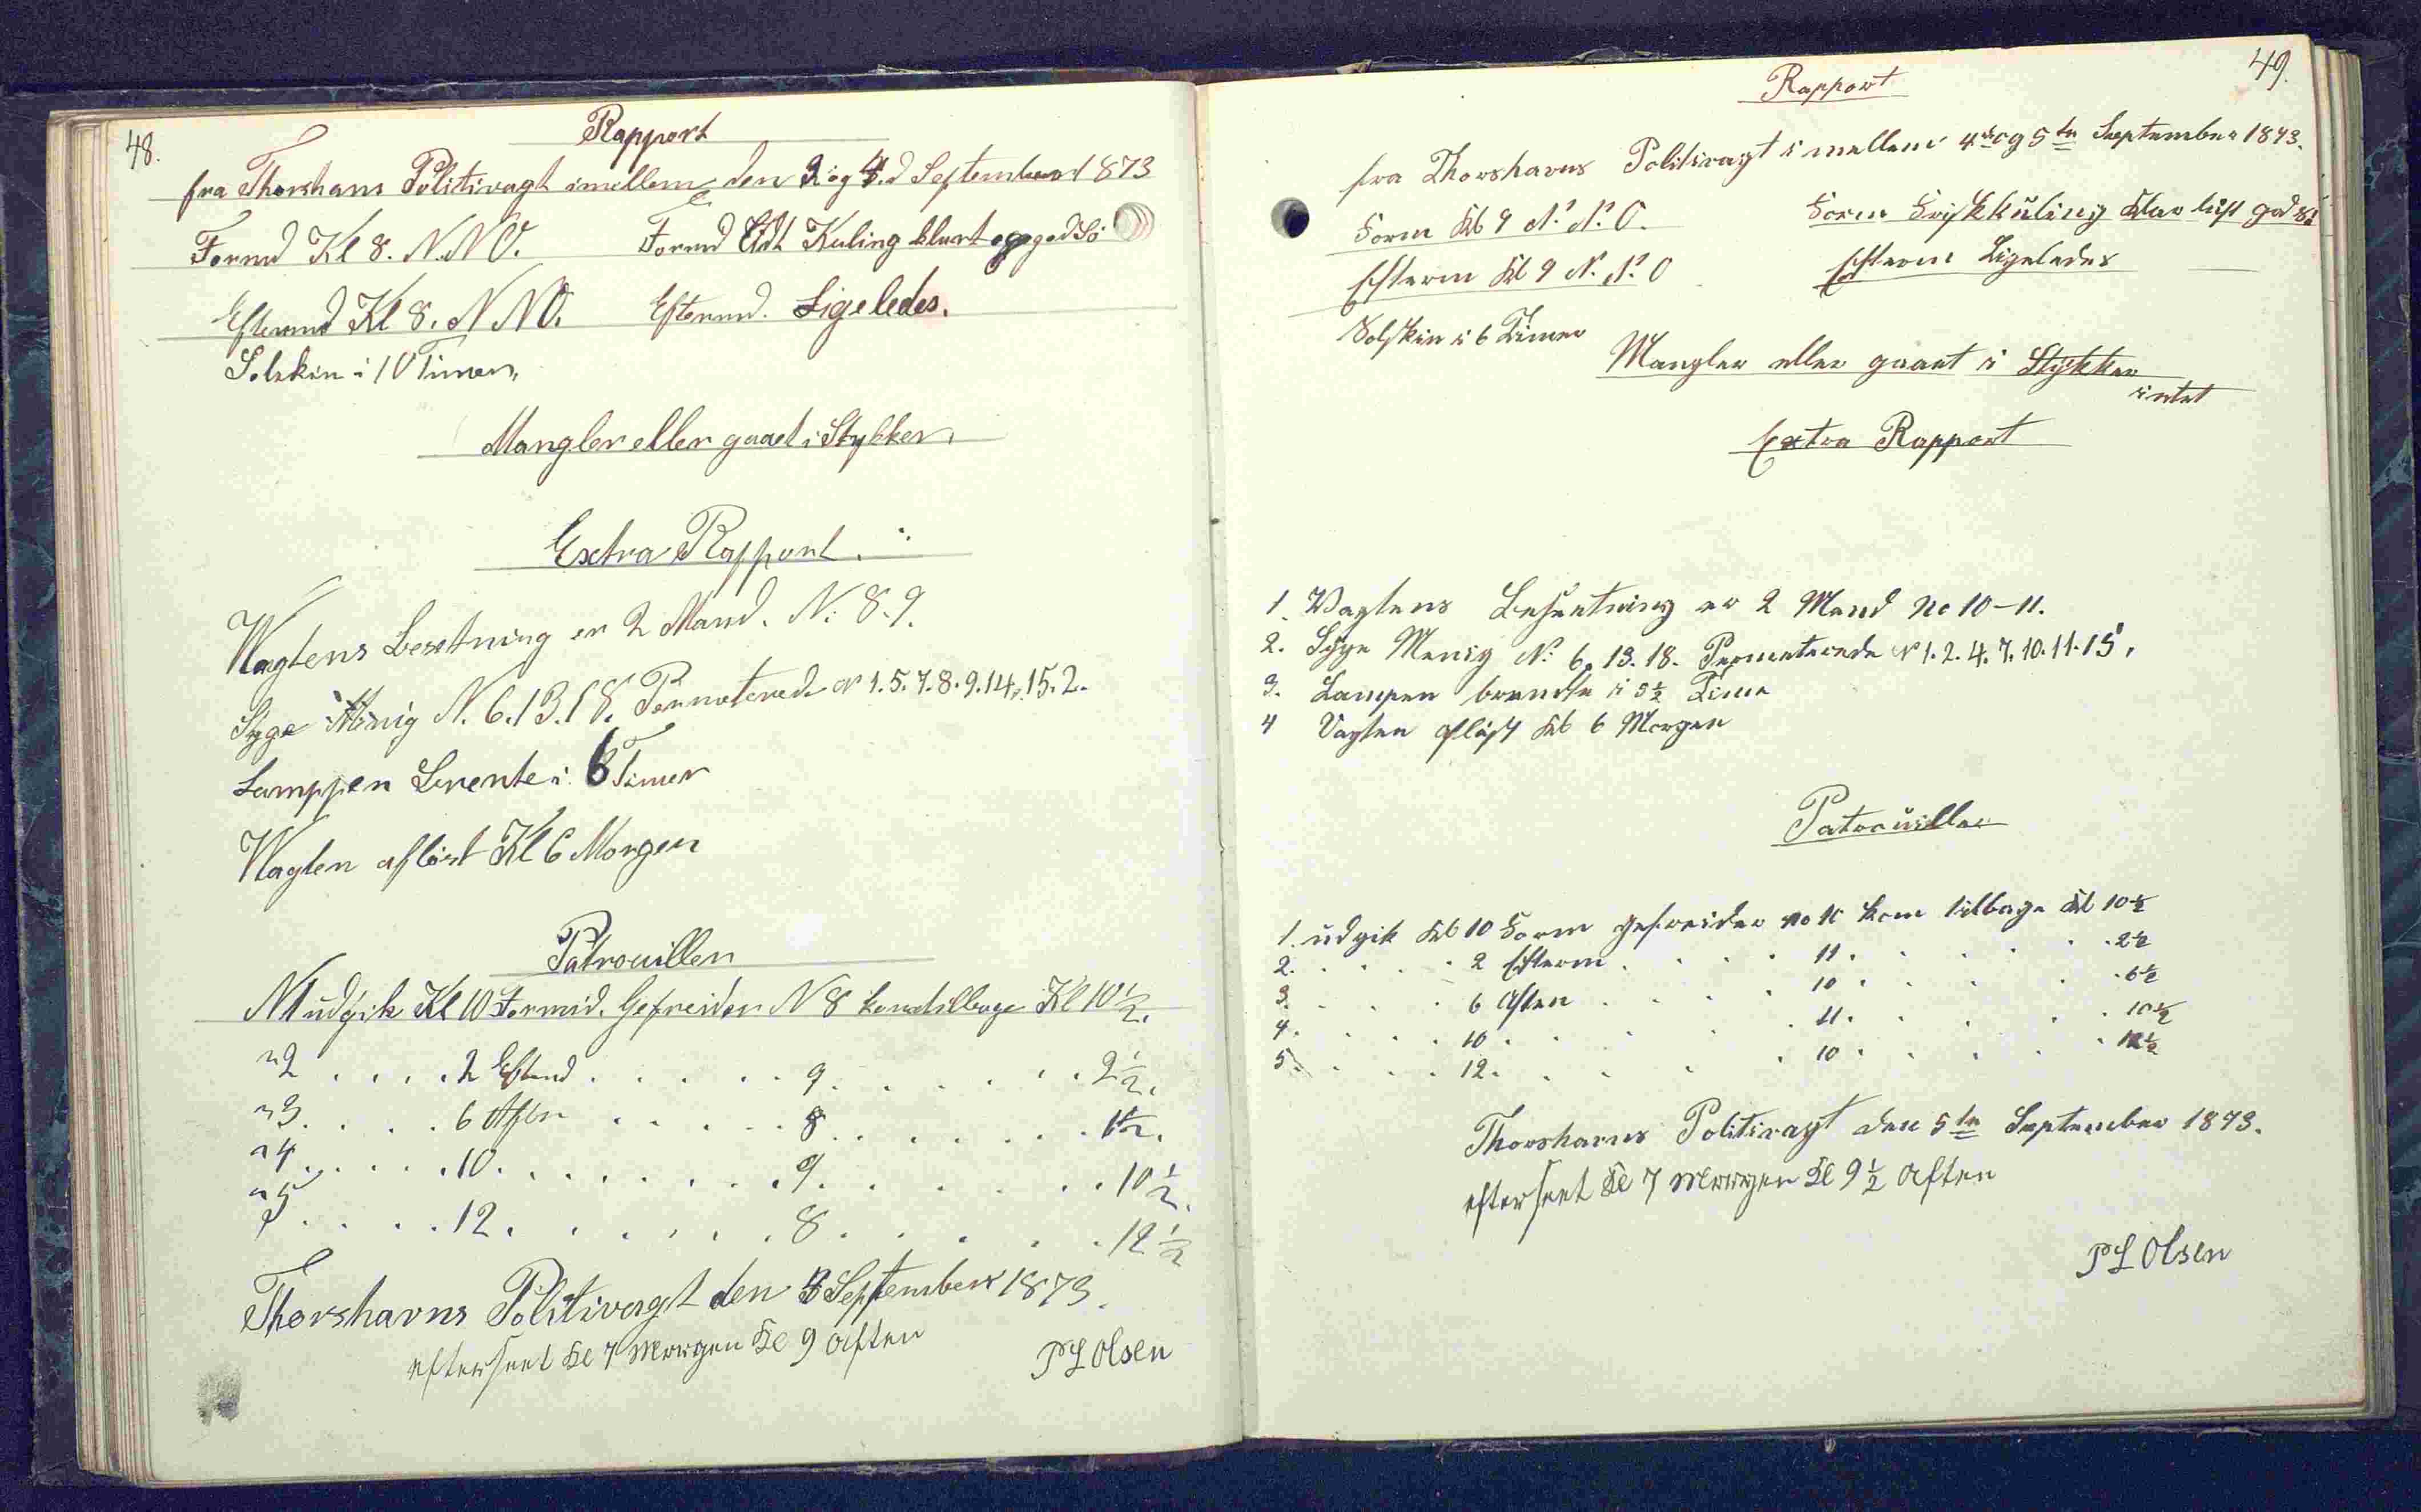 48.
Rapport
fra Thorshans Politivagt imellem den 3 og 4.d September 1873
Formd Kl 8. N.N.O. Formd Lidt Kuling klart og god Sö
Efterm Kl 8. N N O. Eftermd. Ligeledes.
Solskin i 10 Timer,
Mangler eller gaaet i Stykker
Extra Rapport.
Wagtens Besetning er 2 Mand. N: 8.9.
Syge Menig N. 6.13.18. Permeterede N 1.5.7.8.9.14.15.2.
Lamppen Brente i 6 Timer
Wagten aflöst Kl 6 Morgen
Patrouillen
N1 udgik Kl 10 Formid. Gefreider N 8 kom tilbage Kl 10 1/2.
"2 . . . . 2 Eftmd . . . . . 9 . . . . . . 2 1/2.
"3 . . . . 6 Aften . . . . . 8 . . . . . . 6 1/2.
"4 . . . . . 10 . . . . . . . 9 . . . . . . 10 1/2.
"5 . . . . 12 . . . . . . 8 . . . . . . 12 1/2
Thorshavns Politivagt den 4 September 1873.
efterseet Kl 7 Morgen Kl 9 Aften
P L Olsen
49.
Rapport
fra Thorshavns Politivagt imellem 4de og 5te September 1873.
Form Kl 9 N. N. O. Form Frisk Kuling Klar luft god Sö
Efterm Kl 9 N. N. O Efterm Ligeledes
Solskin i 6 Timer
Mangler eller gaaet i Stykker
intet
Extra Rapport
1. Vagtens Besætning er 2 Mand No 10-11.
2. Syge Menig N: 6. 13. 18. Permeterede N 1. 2. 4. 7. 10. 11. 15.
3. Lampen brændte i 5 1/2 Time
4 Vagten afløst Kl 6 Morgen
Patrouiller
1. udgik Kl 10 Form gefreider No 10 kom tilbage Kl 10 1/2
2. . . . . 2 Efterm . . . . 11 . . . . . 2 1/2
3. . . . 6 Aften . . . . 10 . . . . . 6 1/2
4. . . . 10 . . . . . 11 . . . . . 10 1/2
5. . . . 12 . . . . . 10 . . . . . 12 1/2
Thorshavns Politivagt den 5te September 1873.
efterseet Kl 7 Morgen Kl 9 1/2 Aften
P L Olsen